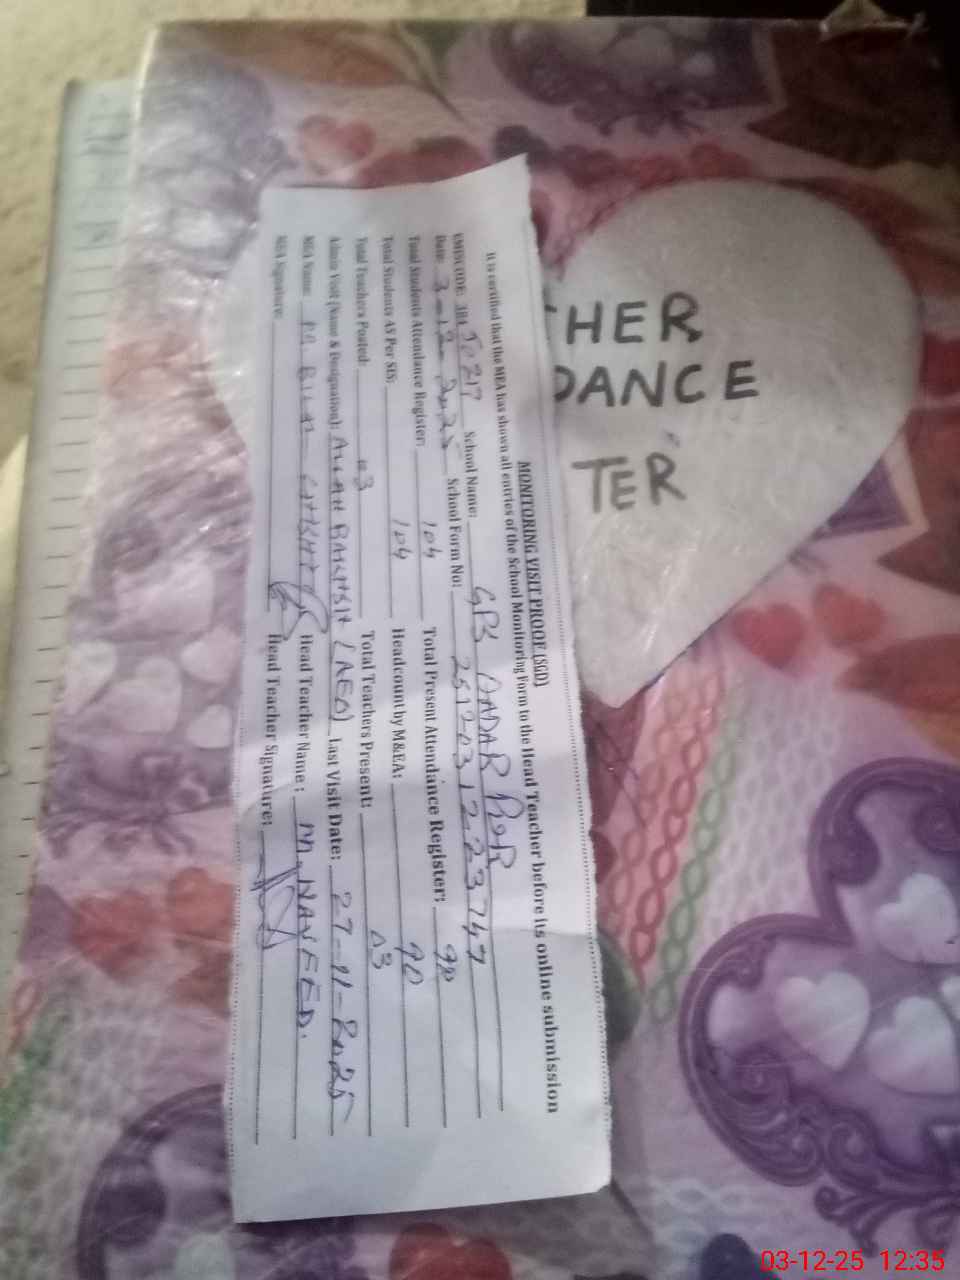 MONITORING VISIT PROOF (SGD)
It is certified that the MEA has shown all entries of the School Monitoring Form to the Head Teacher before its online submission
EMISCODE 381 School Name: GPS DADAR
Date: 3-12-2025 School Form No: 2512031223747
Total Students Attendance Register: 104 Total Present Attendance Register: 90
Total Students AS Per SIS: 104 Headcount by M&EA: 90
Total Teachers Posted: 03 Total Teachers Present: 03
Admin Visit (Name & Designation): ALLAH BAKHSH (AEO) Last Visit Date: 27-11-2025
MEA Name: M. BILAL Head Teacher Name: M. NAVEED.
MEA Signature: Head Teacher Signature:
HER
DANCE
TER
03-12-25 12:35